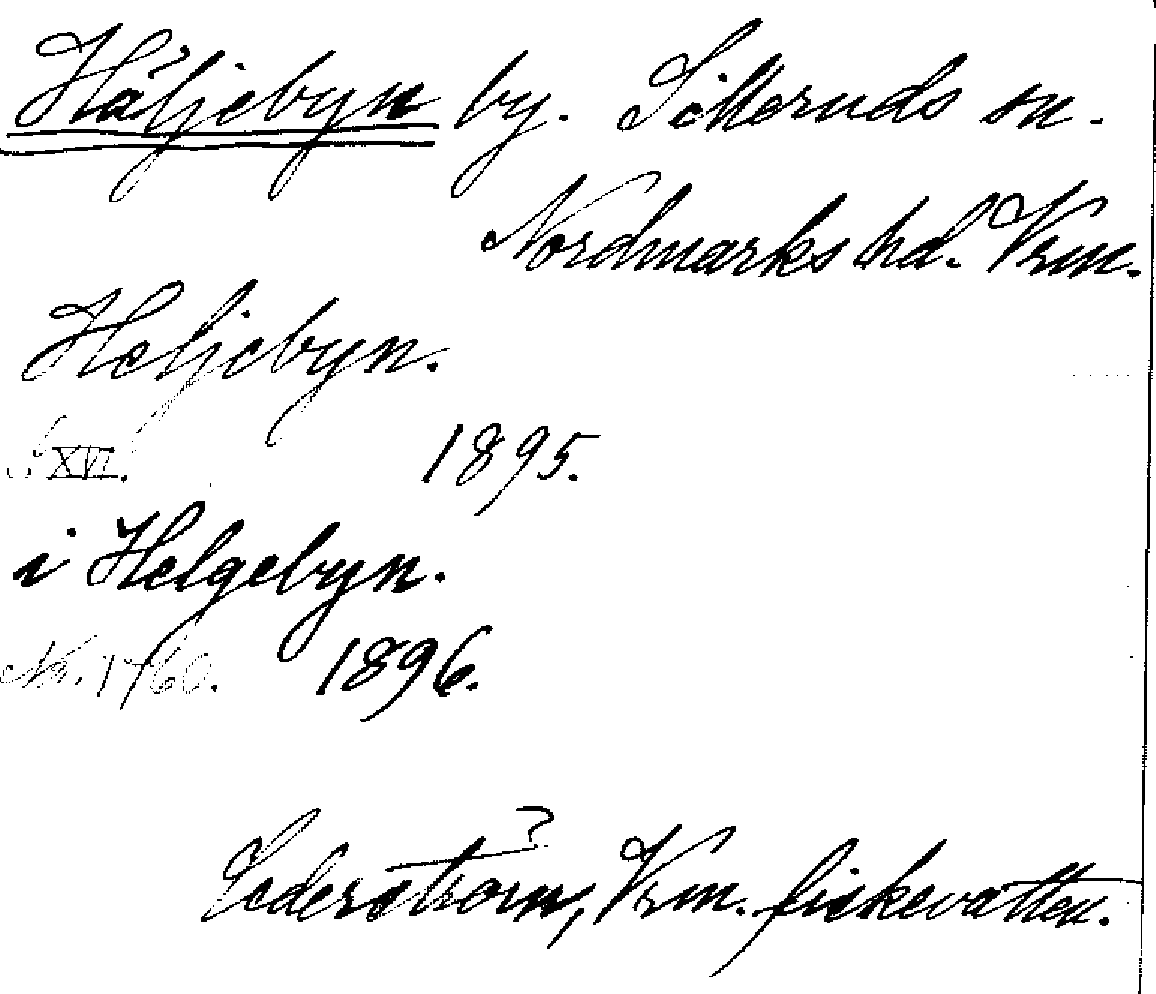 Häljebyn by. Silleruds sn.
Nordmarks hd. Vrm.
Heljebyn.
S. XVI. 1895.
i Helgebyn.
Nr. 1760. 1896.
Cederström, Vrm. fiskevatten.